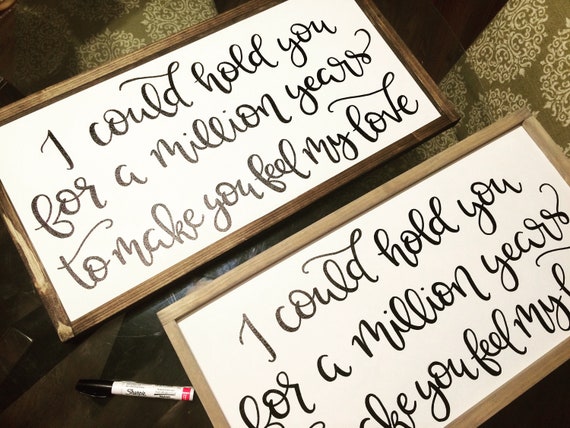 I could hold you
for a million years
to make you feel my love
I could hold you
for a million years
make you feel my
Sharpie